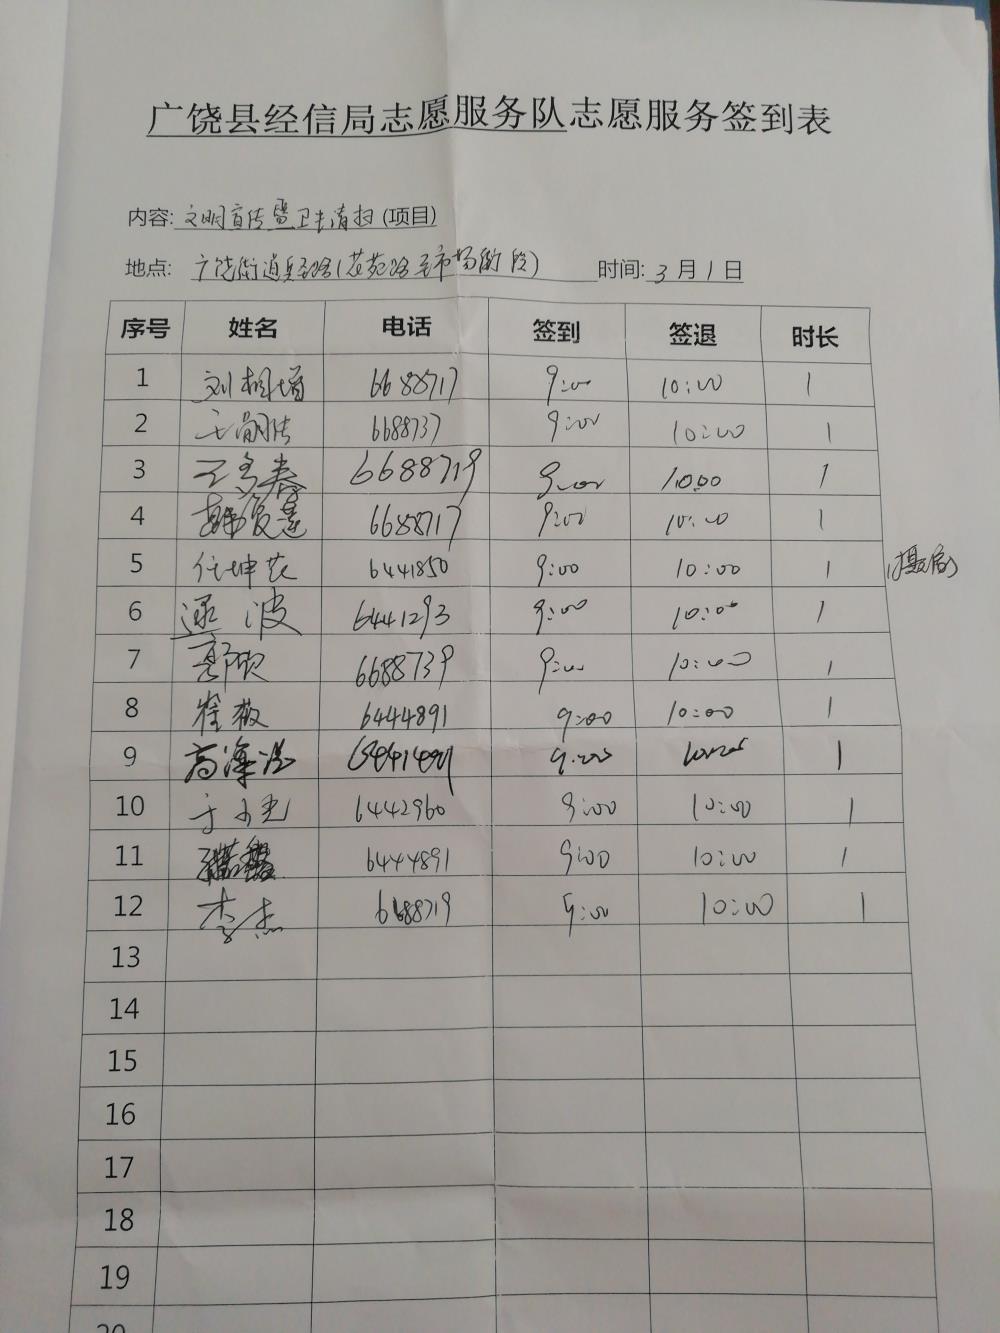 广饶县经信局志愿服务队志愿服务签到表
内容: 文明宣传暨卫生清扫 (项目)
地点: 广饶街道 路(花苑路至市场街段) 时间: 3月1日
序号 姓名 电话 签到 签退 时长
1 刘相增 6688717 9:00 10:00 1
2 6688737 9:00 10:00 1
3 王多春 6688719 9:00 10:00 1
4 6688717 9:00 10:00 1
5 任坤花 6441850 9:00 10:00 1 (摄影)
6 逯波 6441293 9:00 10:00 1
7 郭欣 6688739 9:00 10:00 1
8 崔薇 6444891 9:00 10:00 1
9 9:00 10:00 1
10 于小光 6442960 9:00 10:00 1
11 6444891 9:00 10:00 1
12 李杰 6688719 9:00 10:00 1
13
14
15
16
17
18
19
20